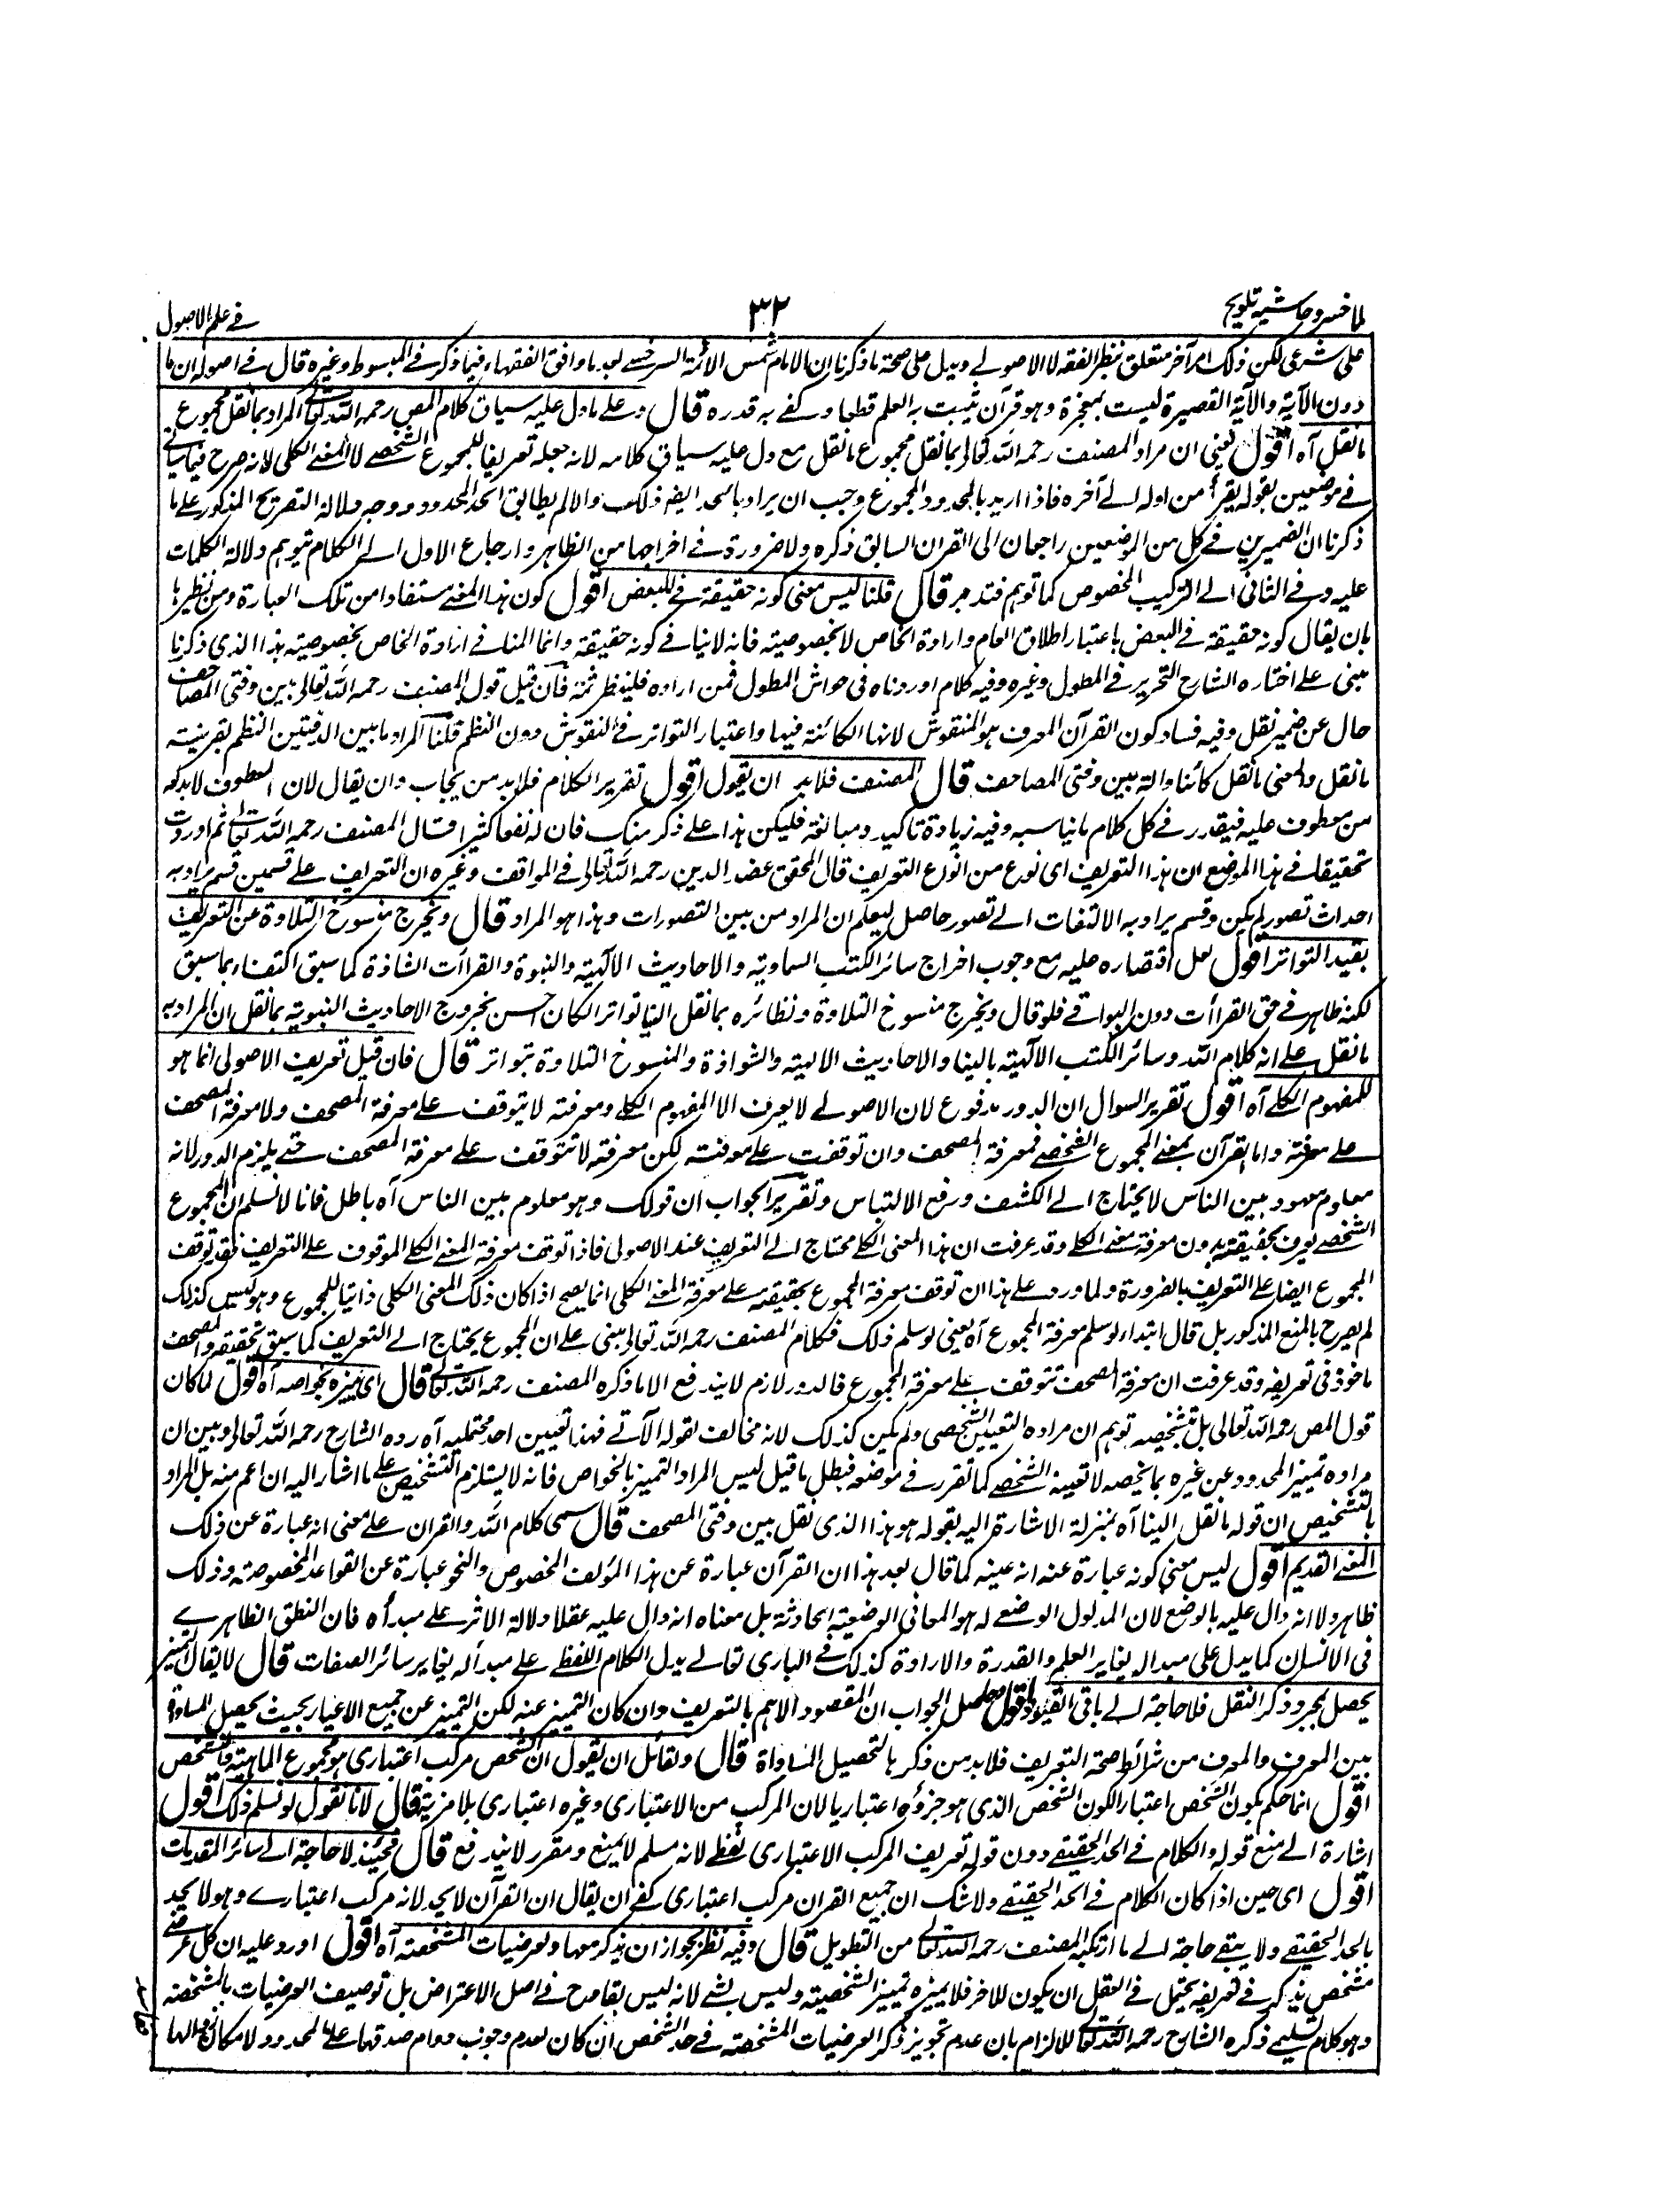 لملا خسرو حاشیه تلویح ٣٢ فی علم الاصول
علی شرعی لکن ذلک امر آخر متعلق بنظر الفقه لا الاصولی ویدل علی صحة ما ذکرنا ان الامام شمس الائمة السرخسی بعد ما وافق الفقهاء فیما ذکر فی المبسوط وغیره قال فی اصوله ان ما
دون الآیة والآیة القصیرة لیست بمعجزة وهو قرآن یثبت به العلم قطعا وکفی به قدره قال وعلی ما دل علیه سیاق کلام المص رحمه الله تعالی المراد بما نقل مجموع
ما نقل آه اقول یعنی ان مراد المصنف رحمه الله تعالی بما نقل مجموع ما نقل مع دل علیه سیاق کلامه لانه جعله تعریفا للمجموع الشخصی لا المعنی الکلی لانه صرح فیما یاتی
فی موضعین بقوله یقرأ من اوله الی آخره فاذا ارید بالمحدود المجموع وجب ان یراد بالحد ایضا ذلک والا لم یطابق الحد المحدود ووجه دلالة التصریح المذکور علی ما
ذکرنا ان الضمیرین فی کل من الموضعین راجعان الی القران السابق ذکره ولا ضرورة فی اخراجهما من الظاهر وارجاع الاول الی الکلام بتوهم دلالة الکلمات
علیه وفی الثانی الی الترکیب المخصوص کما توهم فتدبر قال قلنا لیس معنی کونه حقیقة فی البعض اقول کون هذا المعنی مستفادا من تلک العبارة ومن نظیرها
بان یقال کونه حقیقة فی البعض باعتبار اطلاق العام وارادة الخاص لا بخصوصیته فانه لا ینافی کونه حقیقة وانما المنافی ارادة الخاص بخصوصیته هذا الذی ذکرنا
مبنی علی اختاره الشارح التحریر فی المطول وغیره وفیه کلام اوردناه فی حواشی المطول فمن اراده فلینظر ثمه فان قیل قول المصنف رحمه الله تعالی بین دفتی المصاحف
حال عن ضمیر نقل وفیه فساد کون القرآن المعرف هو المنقوش لانها الکائنة فیها واعتبار التواتر فی النقوش دون النظم قلنا المراد ما بین الدفتین النظم بقرینة
ما نقل والمعنی ما نقل کائنا دالة بین دفتی المصاحف قال المصنف فلا بد ان یقول اقول تقریر الکلام فلا بد من یجاب وان یقال لان المعطوف لا بد له
من معطوف علیه فیقدر فی کل کلام ما یناسبه وفیه زیادة تاکید ومبالغة فلیکن هذا علی ذکر منک فان له نفعا کثیرا قال المصنف رحمه الله تعالی ثم اوردت
تحقیقا فی هذا الموضع ان هذا التعریف ای نوع من انواع التعریف قال المحقق عضد الدین رحمه الله تعالی فی المواقف وغیره ان التعریف علی قسمین قسم یراد به
احداث تصور لم یکن وقسم یراد به الالتفات الی تصور حاصل لیعلم ان المراد من بین التصورات وهذا هو المراد قال ویخرج منسوخ التلاوة عن التعریف
بقید التواتر اقول لعل اقتصاره علیه مع وجوب اخراج سائر الکتب السماویة والاحادیث الآلهیة والنبویة والقراآت الشاذة کما سبق اکتفاء بما سبق
لکنه ظاهر فی حق القرأت دون البواقی فلو قال ویخرج منسوخ التلاوة ونظائره بما نقل الینا تواترا لکان احسن بخروج الاحادیث النبویة بما نقل ان المراد به
ما نقل علی انه کلام الله وسائر الکتب الآلهیة بالینا والاحادیث الالهیة والشواذة والمنسوخ التلاوة بتواتر قال فان قیل تعریف الاصولی انما هو
للمفهوم الکلی آه اقول تقریر السوال ان الدور مدفوع لان الاصولی لا یعرف الا المفهوم الکلی ومعرفته لا یتوقف علی معرفة المصحف ولا معرفة المصحف
علی معرفته واما القرآن بمعنی المجموع الشخصی فمعرفة المصحف وان توقفت علی معرفته لکن معرفته لا تتوقف علی معرفة المصحف حتی یلزم الدور لانه
معلوم معهود بین الناس لا یحتاج الی الکشف ورفع الالتباس وتقریر الجواب ان قولک وهو معلوم بین الناس آه باطل فانا لا نسلم ان المجموع
الشخصی یعرف بحقیقته بدون معرفة معنی الکلی وقد عرفت ان هذا المعنی الکلی محتاج الی التعریف عند الاصولی فاذا توقف معرفة المعنی الکلی الموقوف علی التعریف فقد توقف
المجموع ایضا علی التعریف بالضرورة ولما ورد علی هذا ان توقف معرفة المجموع بحقیقته علی معرفة المعنی الکلی انما یصح اذا کان ذلک المعنی الکلی ذاتیا للمجموع وهو لیس کذلک
لم یصرح بالمنع المذکور بل قال ابتداء لو سلم معرفة المجموع آه یعنی لو سلم ذلک فکلام المصنف رحمه الله تعالی مبنی علی ان المجموع یحتاج الی التعریف کما سبق تحقیقه والمصحف
ماخوذ فی تعریفه وقد عرفت ان معرفة المصحف تتوقف علی معرفة المجموع فالدور لازم لا یندفع الا ما ذکره المصنف رحمه الله تعالی قال ای تمیزه بخواصه آه اقول لما کان
قول المص رحمه الله تعالی بل تشخیصه توهم ان مراده التعیین الشخصی ولم یکن کذلک لانه مخالف لقوله الآتی فهذا تعیین احد محتملیه آه رده الشارح رحمه الله تعالی وبین ان
مراده تمییز المحدود عن غیره بما یخصه لا تعیینه الشخصی کما تقرر فی موضعه فبطل ما قیل لیس المراد التمییز بالخواص فانه لا یستلزم التشخیص علی ما اشار الیه ان اعم منه بل المراد
بالتشخیص ان قوله ما نقل الینا آه بمنزلة الاشارة الیه بقوله هو هذا الذی نقل بین دفتی المصحف قال سمی کلام الله والقران علی معنی انه عبارة عن ذلک
المعنی القدیم اقول لیس معنی کونه عبارة عنه انه عینه کما قال بعد هذا ان القرآن عبارة عن هذا المؤلف المخصوص والنحو عبارة عن القواعد المخصوصة وذلک
ظاهر ولا انه دال علیه بالوضع لان المدلول الوضعی له هو المعانی الوضعیة الحادثة بل معناه انه دال علیه عقلا دلالة الاثر علی مبدأه فان النطق الظاهری
فی الانسان کما یدل علی مبدا له یغایر العلم والقدرة والارادة کذلک فی الباری تعالی یدل الکلام اللفظی علی مبدأ له یغایر سائر الصفات قال لا یقال التمییز
یحصل بمجرد ذکر النقل فلا حاجة الی باقی القیود اقول محصل الجواب ان المقصود الاهم بالتعریف وان کان التمییز عنه لکن التمییز عن جمیع الاغیار بحیث یحصل المساواة
بین المعرف والمعرف من شرائط صحة التعریف فلا بد من ذکر ما لتحصیل المساواة قال ولقائل ان یقول ان الشخص مرکب اعتباری هو مجموع الماهیة والتشخص
اقول انما حکم بکون الشخص اعتباریا لکون الشخص الذی هو جزؤه اعتباریا لان المرکب من الاعتباری وغیره اعتباری بلا مریة قال لانا نقول لو نسلم ذلک اقول
اشارة الی منع قوله والکلام فی الحد الحقیقی دون قوله تعریف المرکب الاعتباری لفظی لانه مسلم لا یمنع ومقرر لا یندفع قال فحینئذ لا حاجة الی سائر المقدمات
اقول ای حین اذا کان الکلام فی الحد الحقیقی ولا شک ان جمیع القران مرکب اعتباری کفی ان یقال ان القرآن لا یحد لانه مرکب اعتباری وهو لا یحد
بالحد الحقیقی ولا یبقی حاجة الی ما ارتکبه المصنف رحمه الله تعالی من التطویل قال وفیه نظر لجواز ان یذکر معها والعرضیات المشخصة آه اقول اورد علیه ان کل عرضی
مشخص یذکر فی تعریفه یحتمل فی العقل ان یکون للاخر فلا یمیزه تمییز الشخصیة ولیس بشیء لانه لیس بقادح فی اصل الاعتراض بل توصیف العرضیات بالمشخصة
وهو کلام تسلیمی ذکره الشارح رحمه الله تعالی للالزام بان عدم تجویز ذکر العرضیات المشخصة فی حد الشخص ان کان لعدم وجوب دوام صدقها علی المحدود ولامکان زوالها